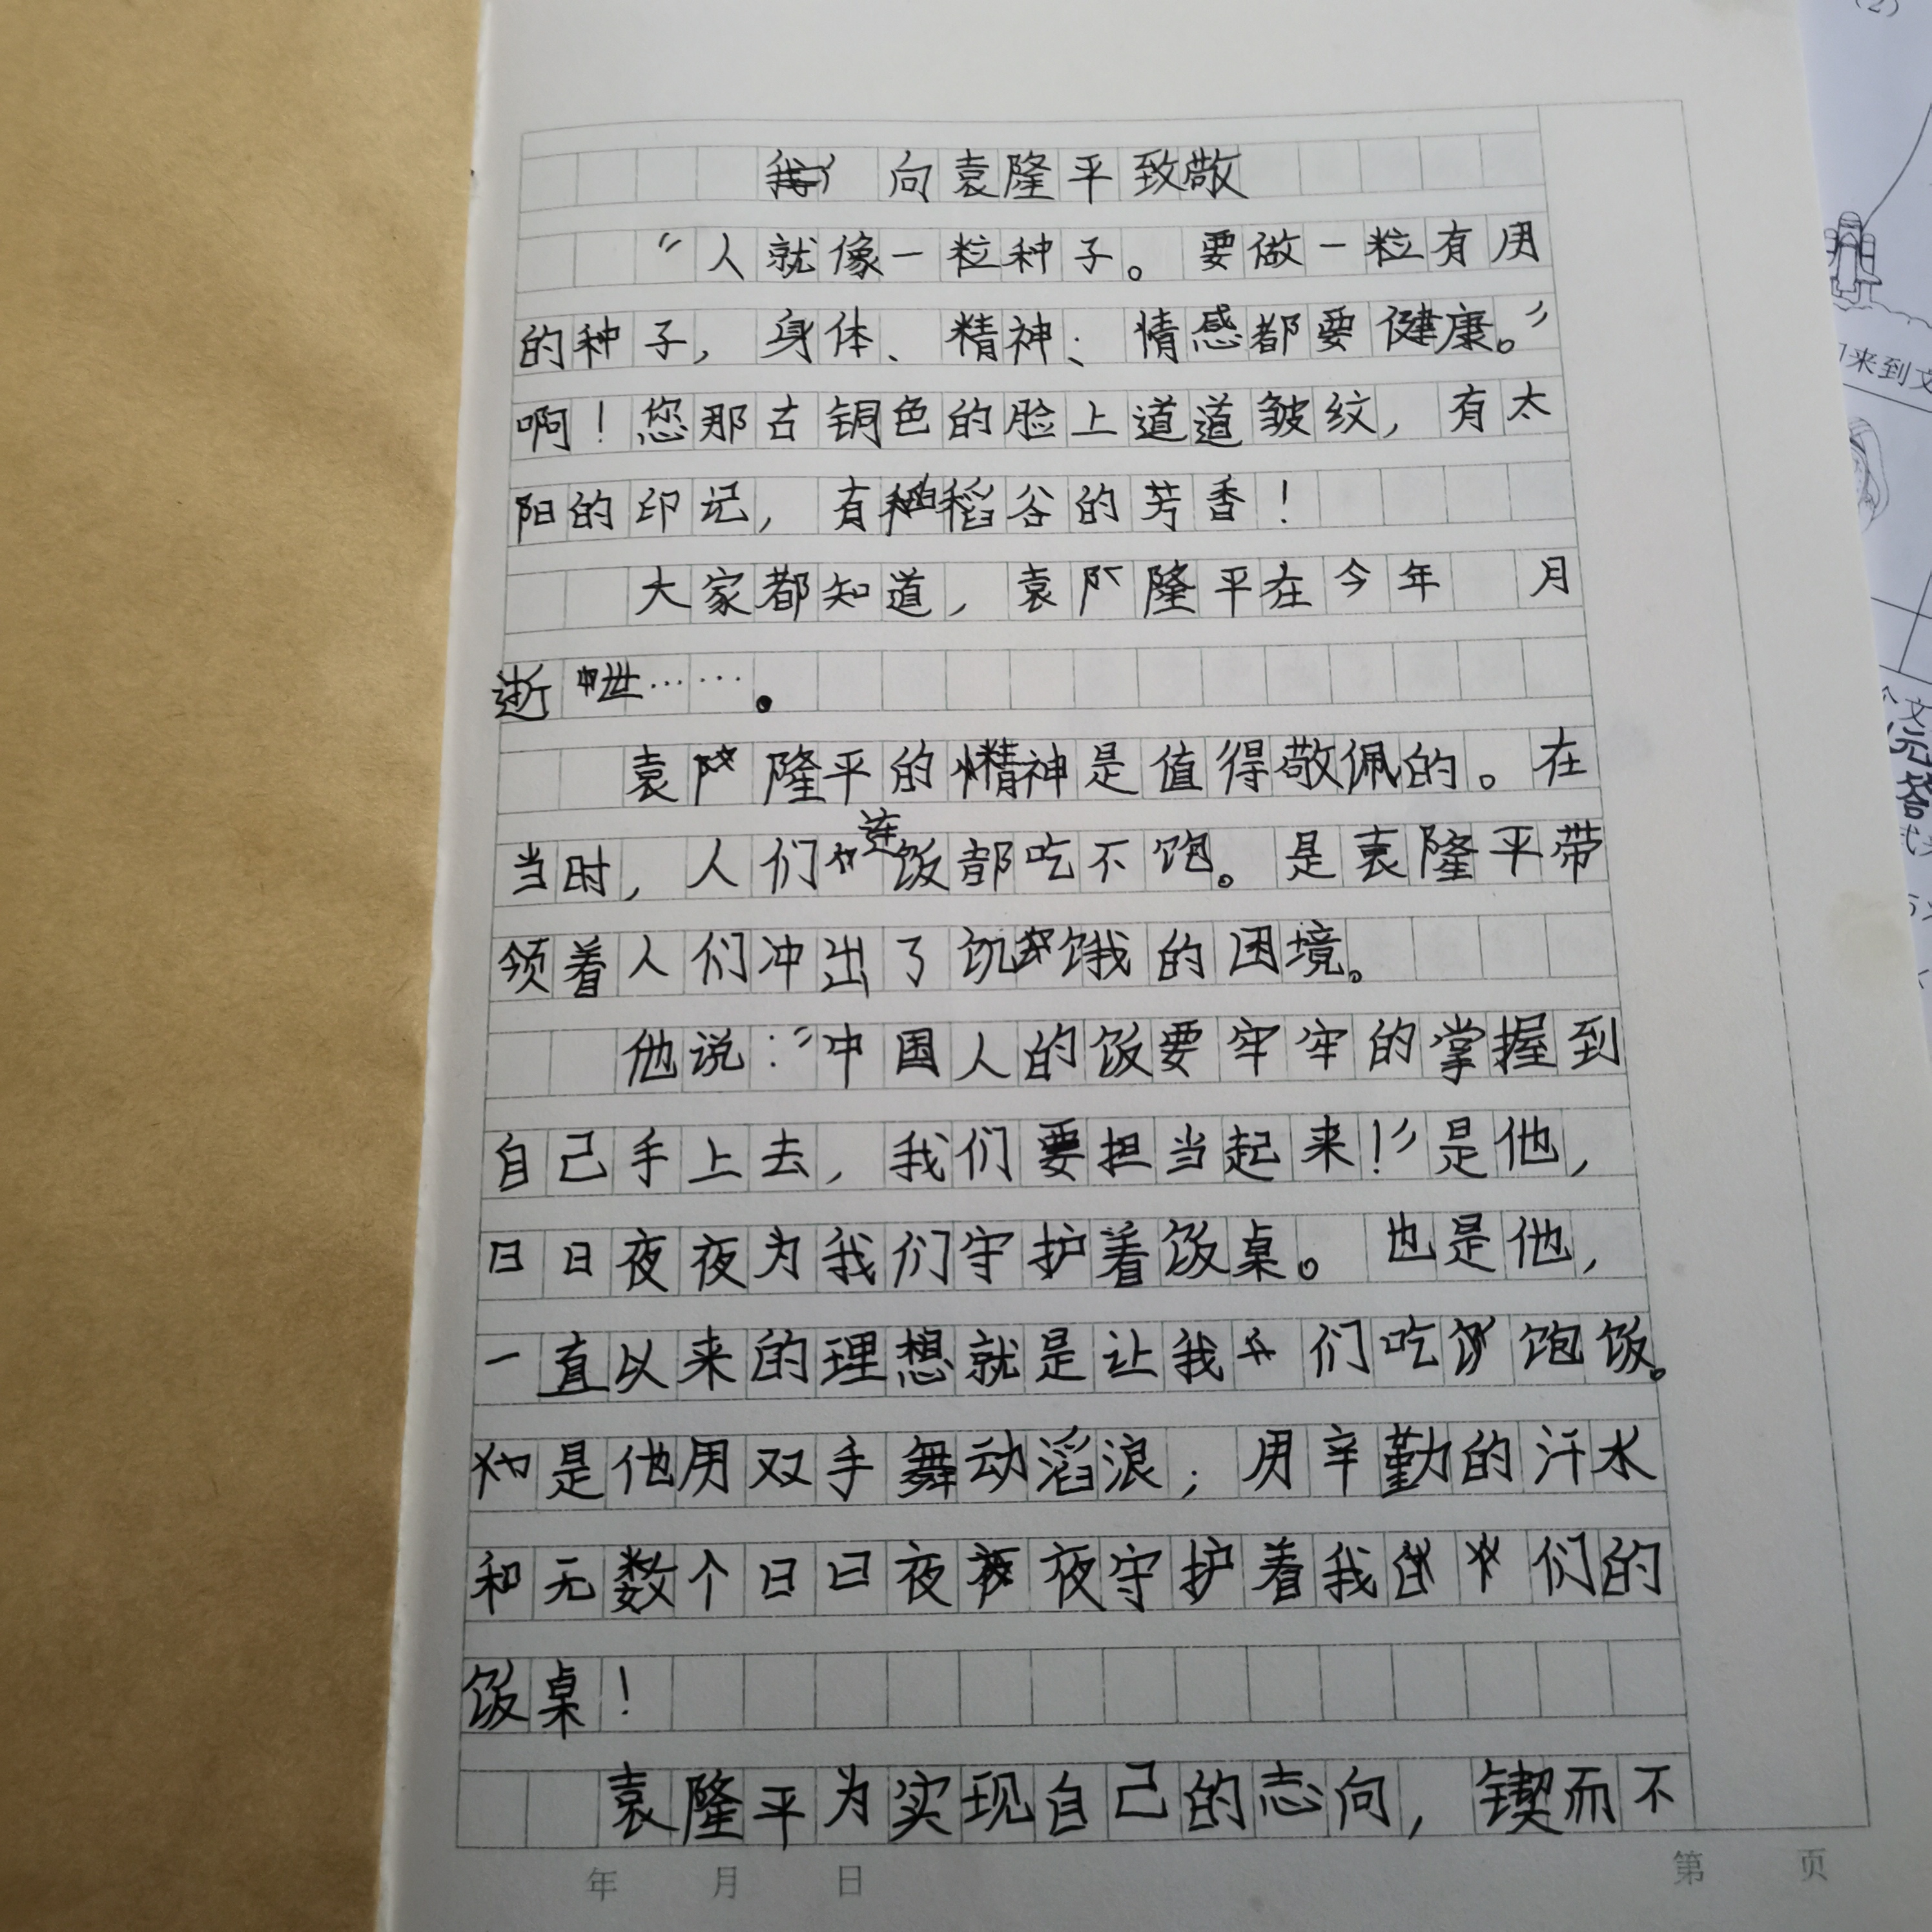 向袁隆平致敬
“人就像一粒种子。要做一粒有用
的种子，身体、精神、情感都要健康。”
啊！您那古铜色的脸上道道皱纹，有太
阳的印记，有稻谷的芳香！
大家都知道，袁隆平在今年 月
逝世……。
袁隆平的精神是值得敬佩的。在
当时，人们连饭都吃不饱。是袁隆平带
领着人们冲出了饥饿的困境。
他说：“中国人的饭要牢牢的掌握到
自己手上去，我们要担当起来！”是他，
日日夜夜为我们守护着饭桌。也是他，
一直以来的理想就是让我们吃饱饭。
是他用双手舞动滔浪；用辛勤的汗水
和无数个日日夜夜守护着我们的
饭桌！
袁隆平为实现自己的志向，锲而不
年 月 日 第 页
(2)
来到文